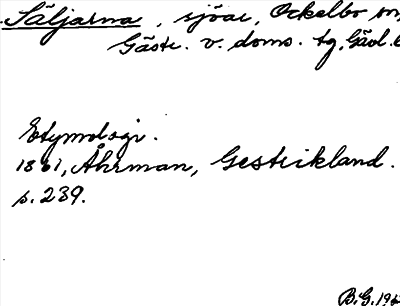 Säljarna, sjöar, Ockelbo sn,
Gästr. v. doms. tg, Gävl.
Etymologi.
1861, Åhrman, Gestrikland.
s. 239.
B.G.